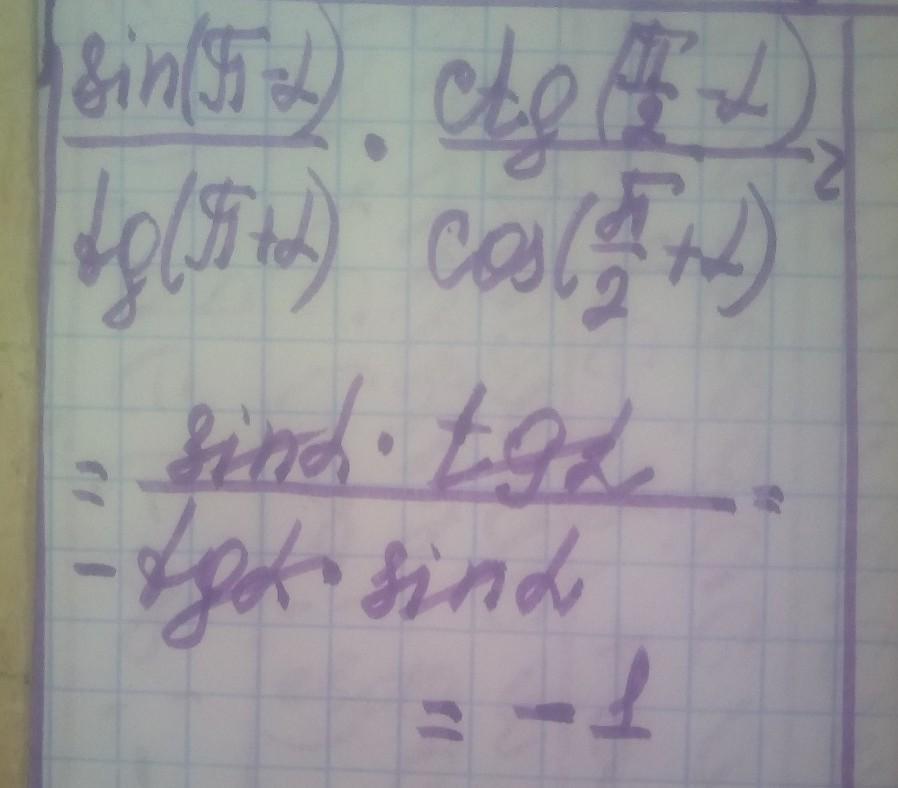 sin(π-α)/tg(π+α) · ctg(π/2 -α)/cos(π/2 +α) =
= sinα · tgα / -tgα · sinα =
= -1